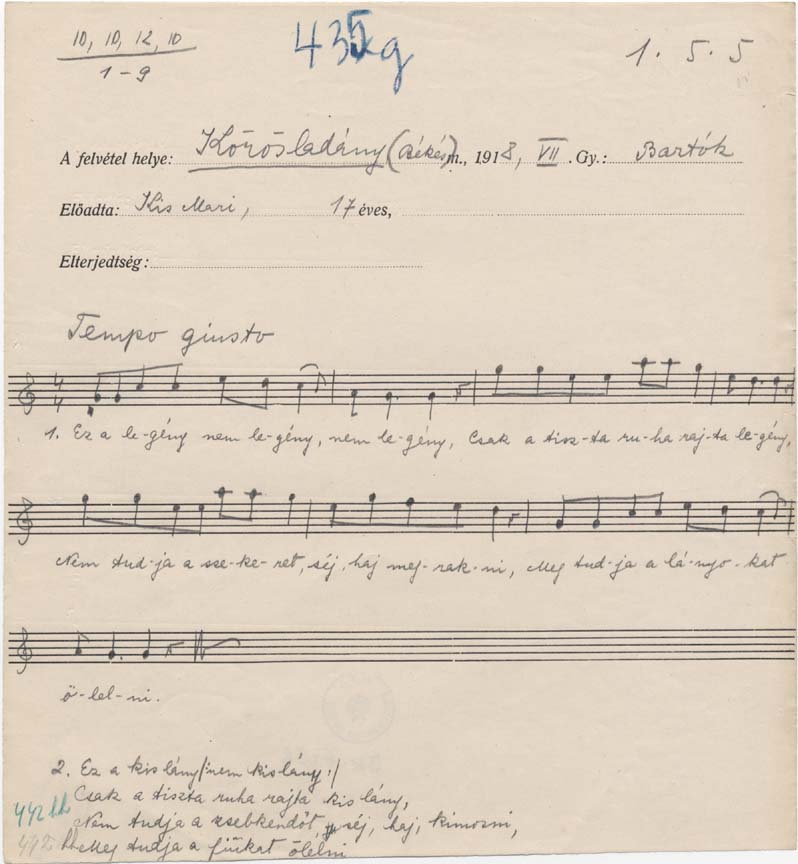 10, 10, 12, 10
1-9
1. 5. 5
A felvétel helye: Körösladány (Békés m., 1918, VII. Gy.: Bartók
Előadta: Kis Mari, 17 éves,
Elterjedtség:
Tempo giusto
1. Ez a le-gény nem le-gény, nem le-gény, Csak a tisz-ta ru-ha raj-ta le-gény,
Nem tud-ja a sze-ke-ret, séj, haj meg-rak-ni, Meg tud-ja a lá-nyo-kat
ö-lel-ni.
2. Ez a kis lány /:nem kis lány,:/
Csak a tiszta ruha rajta kis lány,
Nem tudja a zsebkendőt, séj, haj, kimosni,
Meg tudja a fiúkat ölelni